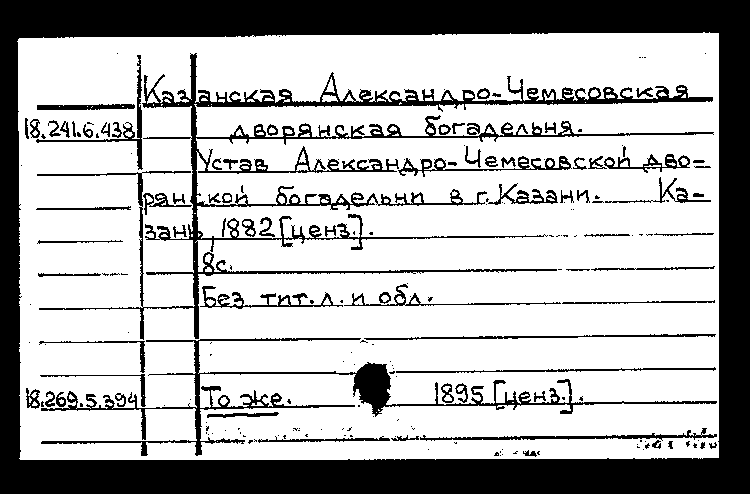 Казанская Александро-Чемесовская
18.241.6.438 дворянская богадельня.
Устав Александро-Чемесовской дво-
рянской богадельни в г. Казани. Ка-
зань, 1882 [ценз.].
8с.
Без тит. л. и обл.
18.269.5.394 То же. 1895 [ценз.].